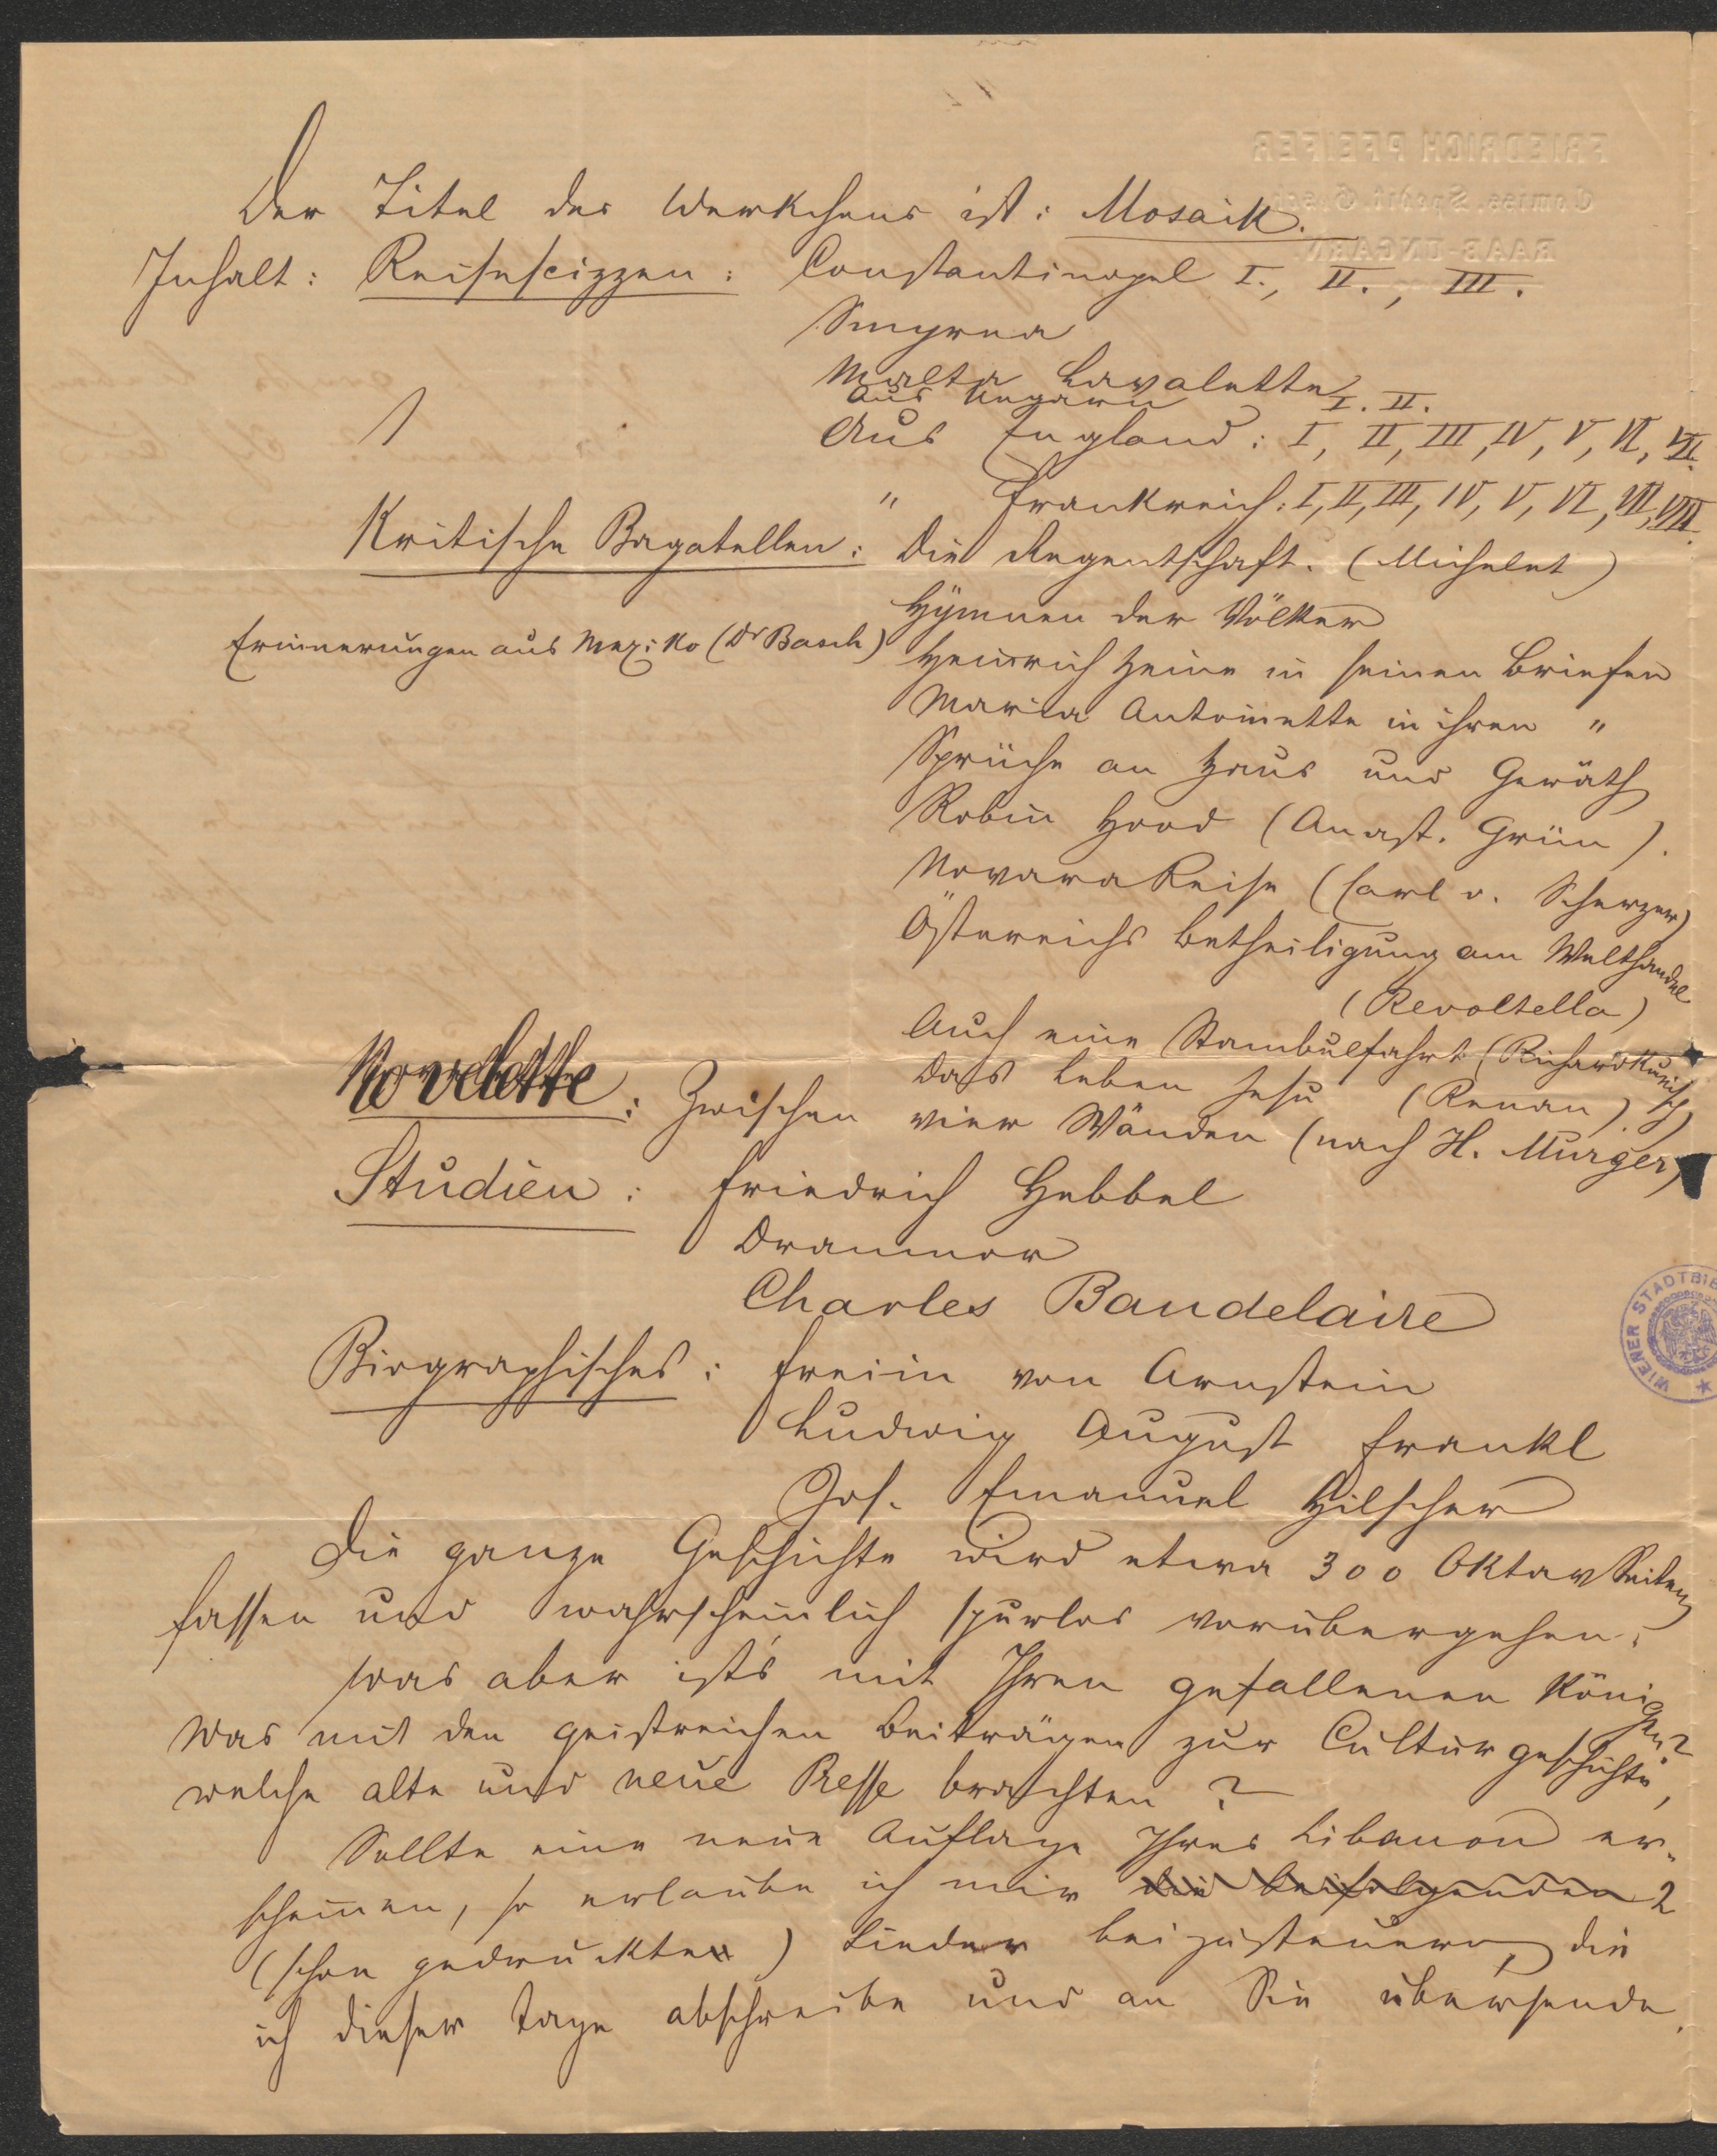 Der Titel des Werkchens ist: Mosaik.
Inhalt: Reisescizzen: Constantinopel I., II., III.
Smyrna
Malta Lavalette
Aus Ungarn I. II.
Aus England: I, II, III, IV, V, VI, VII.
" Frankreich: I, II, III, IV, V, VI, VII, VIII.
Kritische Bagatellen: Die Regentschaft. (Michelet)
Hÿmnen der Völker
Erinnerungen aus Mexiko (Dr Basch)
Heinrich Heine in seinen Briefen
Maria Antoinette in ihren "
Sprüche an Haus und Geräth
Robin Hood (Anast. Grün).
Novara Reise (Carl v. Scherzer)
Östereichs Betheiligung am Welthandel
(Revoltella)
Auch eine Stambulfahrt (Richard Kunisch)
Das Leben Jesu (Renan).
Novelette: Zwischen vier Wänden (nach H. Murger)
Studien: Friedrich Hebbel
Dranmor
Charles Baudelaire
Biographisches: Freiin von Arnstein
Ludwig August Frankl
Jos. Emanuel Hilscher
Die ganze Geschichte wird etwa 300 Oktav Seiten
fassen und wahrscheinlich spurlos vorübergehen.
Was aber ists mit Ihren gefallenen Königen?
Was mit den geistreichen Beiträgen zur Culturgeschichte,
welche alte und neue Presse brachten?
Sollte eine neue Auflage Ihres Libanon er-
scheinen, so erlaube ich mir die beifolgenden 2
(schon gedruckten) Lieder beizusteuern, die
ich dieser Tage abschreibe und an Sie übersende.
FRIEDRICH PFEIFER
RAAB-UNGARN
WIENER STADTBIB